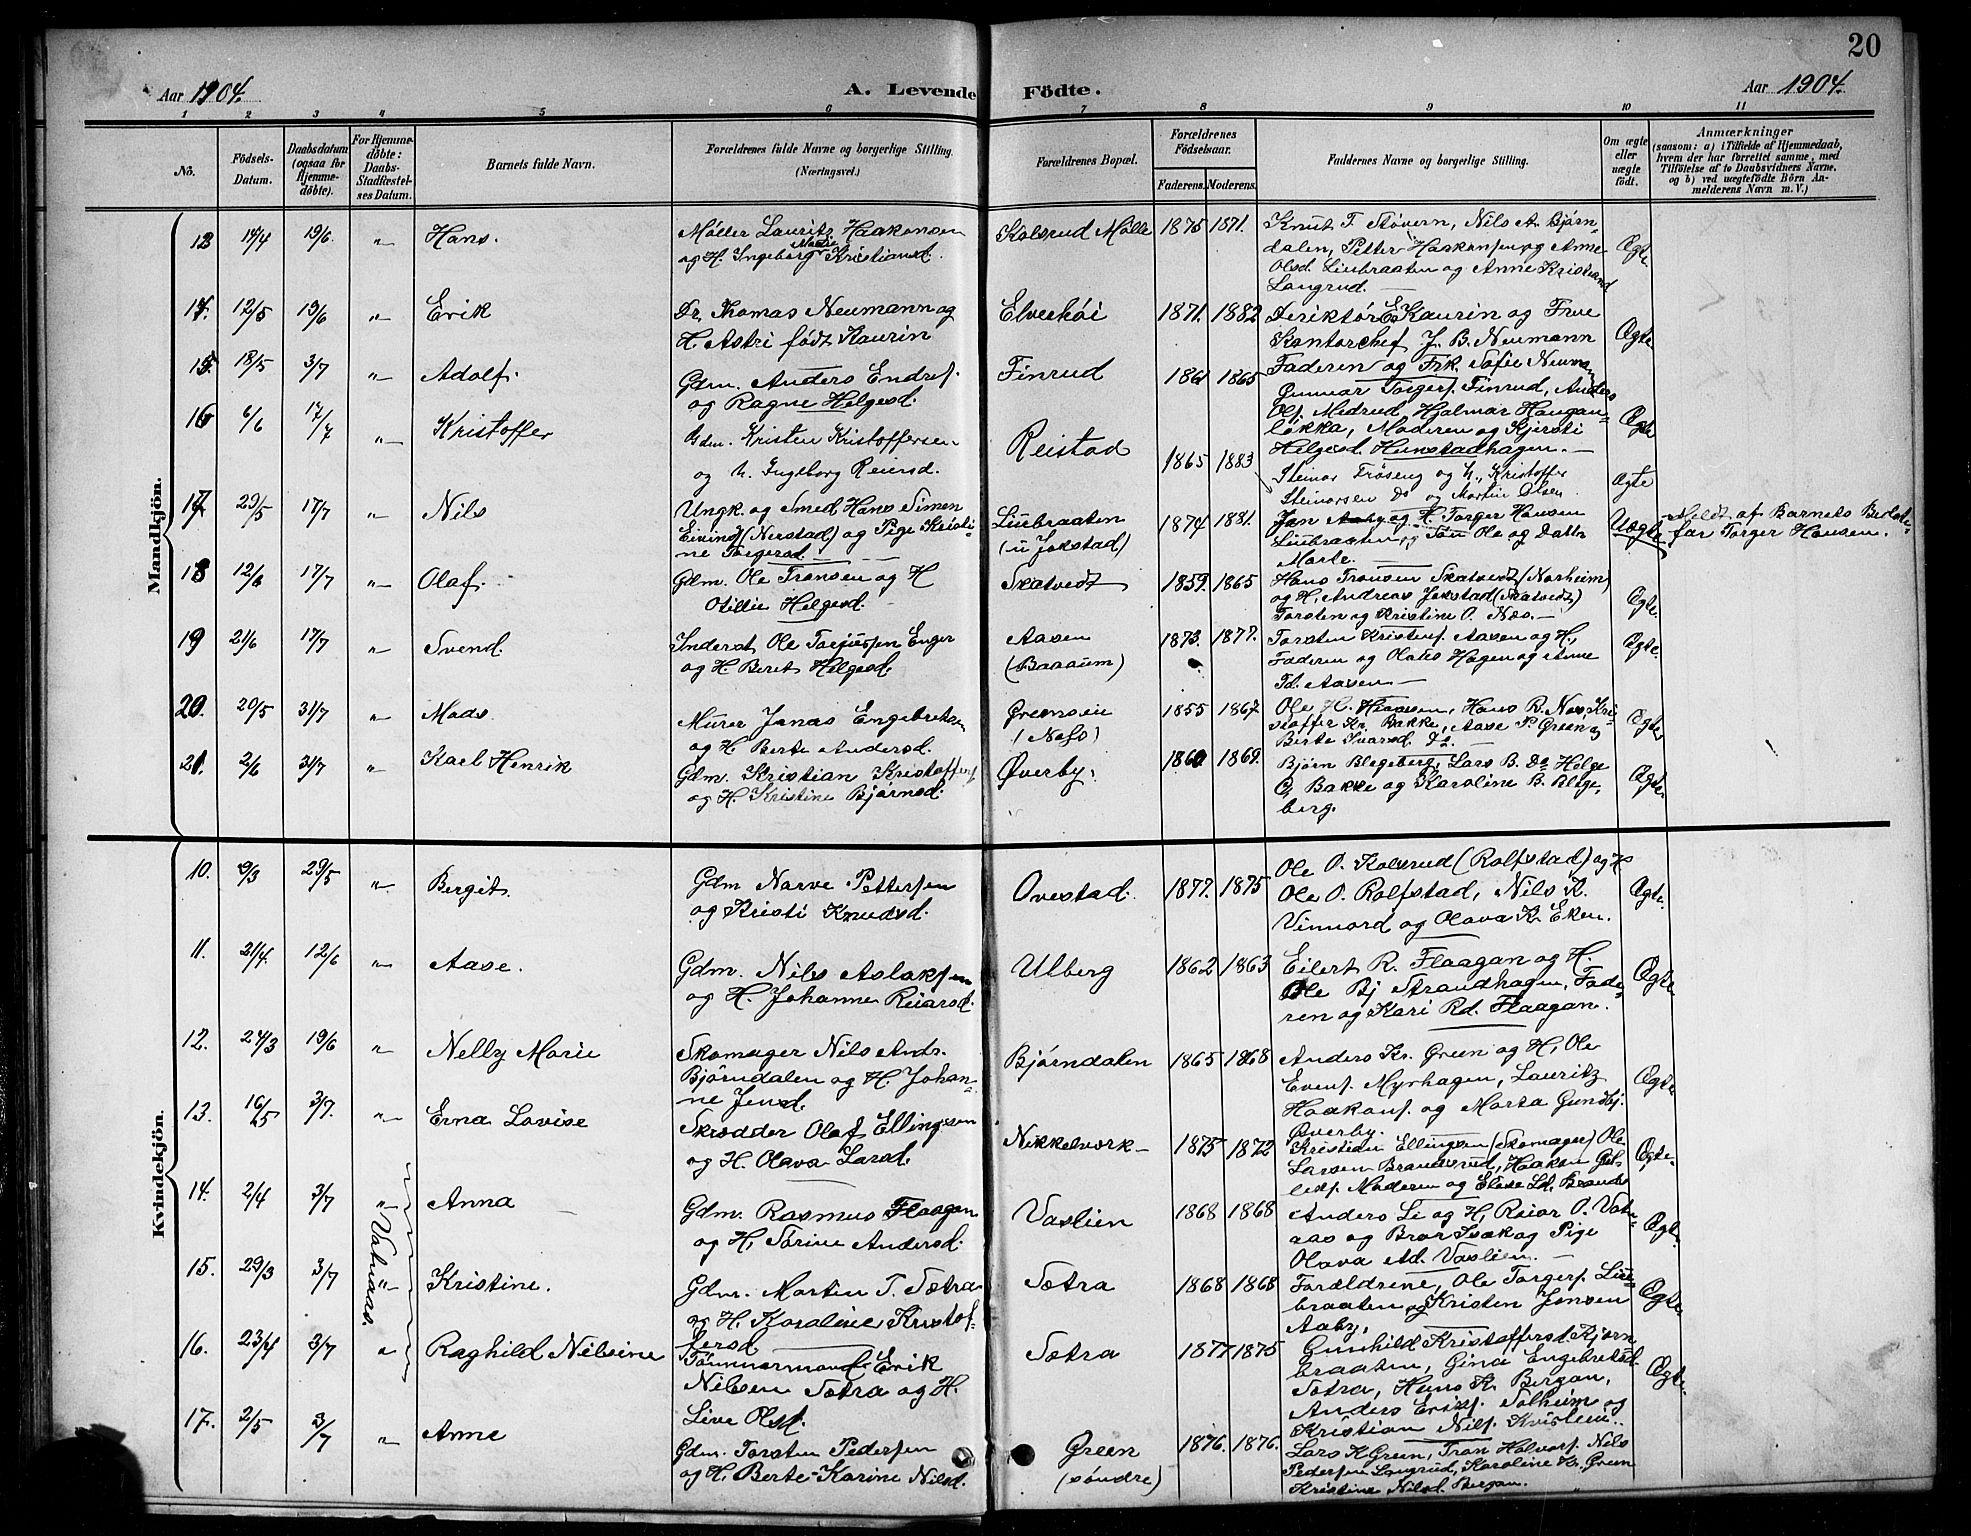 20
Aar 1904.
A. Levende Födte.
Aar 1904.
1 2 3 4 5 6 7 8 9 10 11
No.
Födsels-Datum.
Daabsdatum (ogsaa for Hjemmedøbte).
For Hjemmedöbte: Daabs-Stadfæstelses Datum.
Barnets fulde Navn.
Forældrenes fulde Navne og borgerlige Stilling. (Næringsvei.)
Forældrenes Bopæl.
Forældrenes Födselsaar.
Faderens. Moderens.
Faddernes Navne og borgerlige Stilling.
Om ægte eller uægte født.
Anmærkninger (saasom: a) i Tilfælde af Hjemmedaab, hvem der har forrettet samme, med Tilföielse af to Daabsvidners Navne, og b) ved uægtefödte Börn Anmelderens Navn m. V.)
Mandkjön.
13 14/4 19/6 " Hans. Møller Lauritz Haakonsen
og H. Ingeborg Marie Kristiansd. Kolsrud Mølle 1875 1871. Knut T. Støvern, Nils A. Bjørn-
dalen, Petter Haakonsen og Anne
Olsd. Liubraaten og Anne Kristiansd
Langrud. Ægte
14. 12/5 19/6 " Erik Dr. Thomas Neumann og
H. Astri født Kaurin Elverhøi 1871. 1882 Deriktør E. Kaurin og Frue
Kontorchef J. B. Neumann
Faderen og Frk. Sofie Neumann Ægte
15. 18/5 3/7 " Adolf. Gdm. Anders Endresf.
og Ragne Helgesd. Finrud 1861 1865 Gunnar Torgersf. Finrud, Anders
Olsf. Medrud, Hjalmar Haugan-
løkka, Moderen og Kjersti
Helgesd. Hunstadhagen. Ægte
16 6/6 17/7 " Kristoffer Gdm. Kristen Kristoffersen
og h. Ingeborg Reiersd. Reistad 1865 1883 Steinar Frøseng og h., Kristoffer
Steinarsen Do og Martin Olsen Ægte
17 29/5 17/7 " Nils Ungk. og Smed Hans Simen
Eivind (Nerstad) og Pige Kristi-
ne Torgersd. Liubraaten
(u Jokstad) 1874 1881. Jan Aaby og H. Torger Hansen
Liubraaten og Søn Ole og Datter
Marte. Uægte Meldt af Barnets Bedste-
far Torger Hansen.
18 12/6 17/7 " Olaf. Gdm. Ole Tronsen og H
Otilie Helgesd. Skatvedt 1859. 1865 Hans Tronsen Skatvedt (Norheim)
og H, Andreas Jokstad (Skatvedt)
Torsten og Kristine O. Næs. Ægte.
19 21/6 17/7 " Svend. Inderst Ole Torjussen Enger
og H Berit Helgesd. Aasen
(Baaaum) 1873. 1877. Torsten Kristensf. Aasen og H,
Faderen og Olaus Hagen og Anne
Td. Aasen Ægte.
20. 20/5 31/7 " Mads. Murer Jonas Engebretsen
og H. Berte Andersd. Grønseie
(Næss) 1855 1867 Ole H. Hansen, Hans R. Næs, Kri-
stoffer Kr. Bakke, Aase P. Green og
Berte Ivarsd. Do. Ægte
21. 2/6 31/7 " Karl Henrik Gdm. Kristian Kristoffersf
og H. Kristine Bjørnsd. Øverby. 1860 1869. Bjørn Blegeberg, Lars B. Do Helge
G. Bakke og Karoline B. Blege-
berg. Ægte.
Kvindekjön.
10. 9/3 29/5 " Bergit. Gdm Narve Pettersen
og Kristi Knudsd. Ovestad. 1877. 1875 Ole O. Kolsrud (Rolfstad) og H
Ole O. Rolfstad, Nils K.
Vinnord og Olava K. Eken. Ægte.
11. 21/4. 12/6 " Aase. Gdm. Nils Aslaksen
og H. Johanne Reiarsd. Ulberg 1862 1863 Eilert R. Flaagan og H.
Ole Bj Strandhagen, Fade-
ren og Kari Rd. Flaagan. Ægte.
12. 24/3 19/6 " Nelly Marie Skomager Nils Andr.
Bjørndalen og H. Johan-
ne Jensd. Bjørndalen 1865 1868 Anders Kr. Green og H, Ole
Evensf. Myrhagen, Lauritz
Haakonsf. og Marta Gundbj.
Øverby. Ægte
13. 16/5 3/7. " Erna Lovise Skrædder Olaf Ellingsen
og H. Olava Larsd. Nikkelværk 1875 1872 Kristian Ellingsen (Skomager) Ole
Larsen Brandsrud, Haaken Gul-
liksf. Moderen og Elise Ld. Brands Ægte.
14. 2/4 3/7 " Vatnaas. Anna Gdm. Rasmus Flaagan
og H, Sørine Andersd. Vaslien 1868 1868 Anders Li og H, Reior O. Vatn-
aas og Bror Isak og Pige
Olava Ad. Vaslien. Ægte.
15. 29/3 3/7 " Kristine. Gdm. Martin T. Sætra
og H. Karoline Kristof-
fersd. Sætra 1868 1868 Forældrene, Ole Torgersf. Liu-
braaten og Kristen Jensen
Aaby. Ægte
16. 23/4 3/7 " Raghild Nilsine Tømmermand Erik
Nilsen Sætra og H.
Live Olsd. Sætra 1877 1875 Gunhild Kristoffersd. Kjørn-
braaten, Gina Engebretsd.
Sætra, Hans K. Bergan,
Anders Eriksf. Solheim og
Kristian Nilsf. Kvislein. Ægte.
17. 2/5 3/7 " Anne Gdm. Torsten Pedersen
og H, Berte-Karine Nilsd. Green
(søndre) 1876. 1876. Lars K. Green, Tron Halvorsf. Nils
Pedersen Langrud, Karoline Kr. Green
Kristine Nilsd. Bergan.